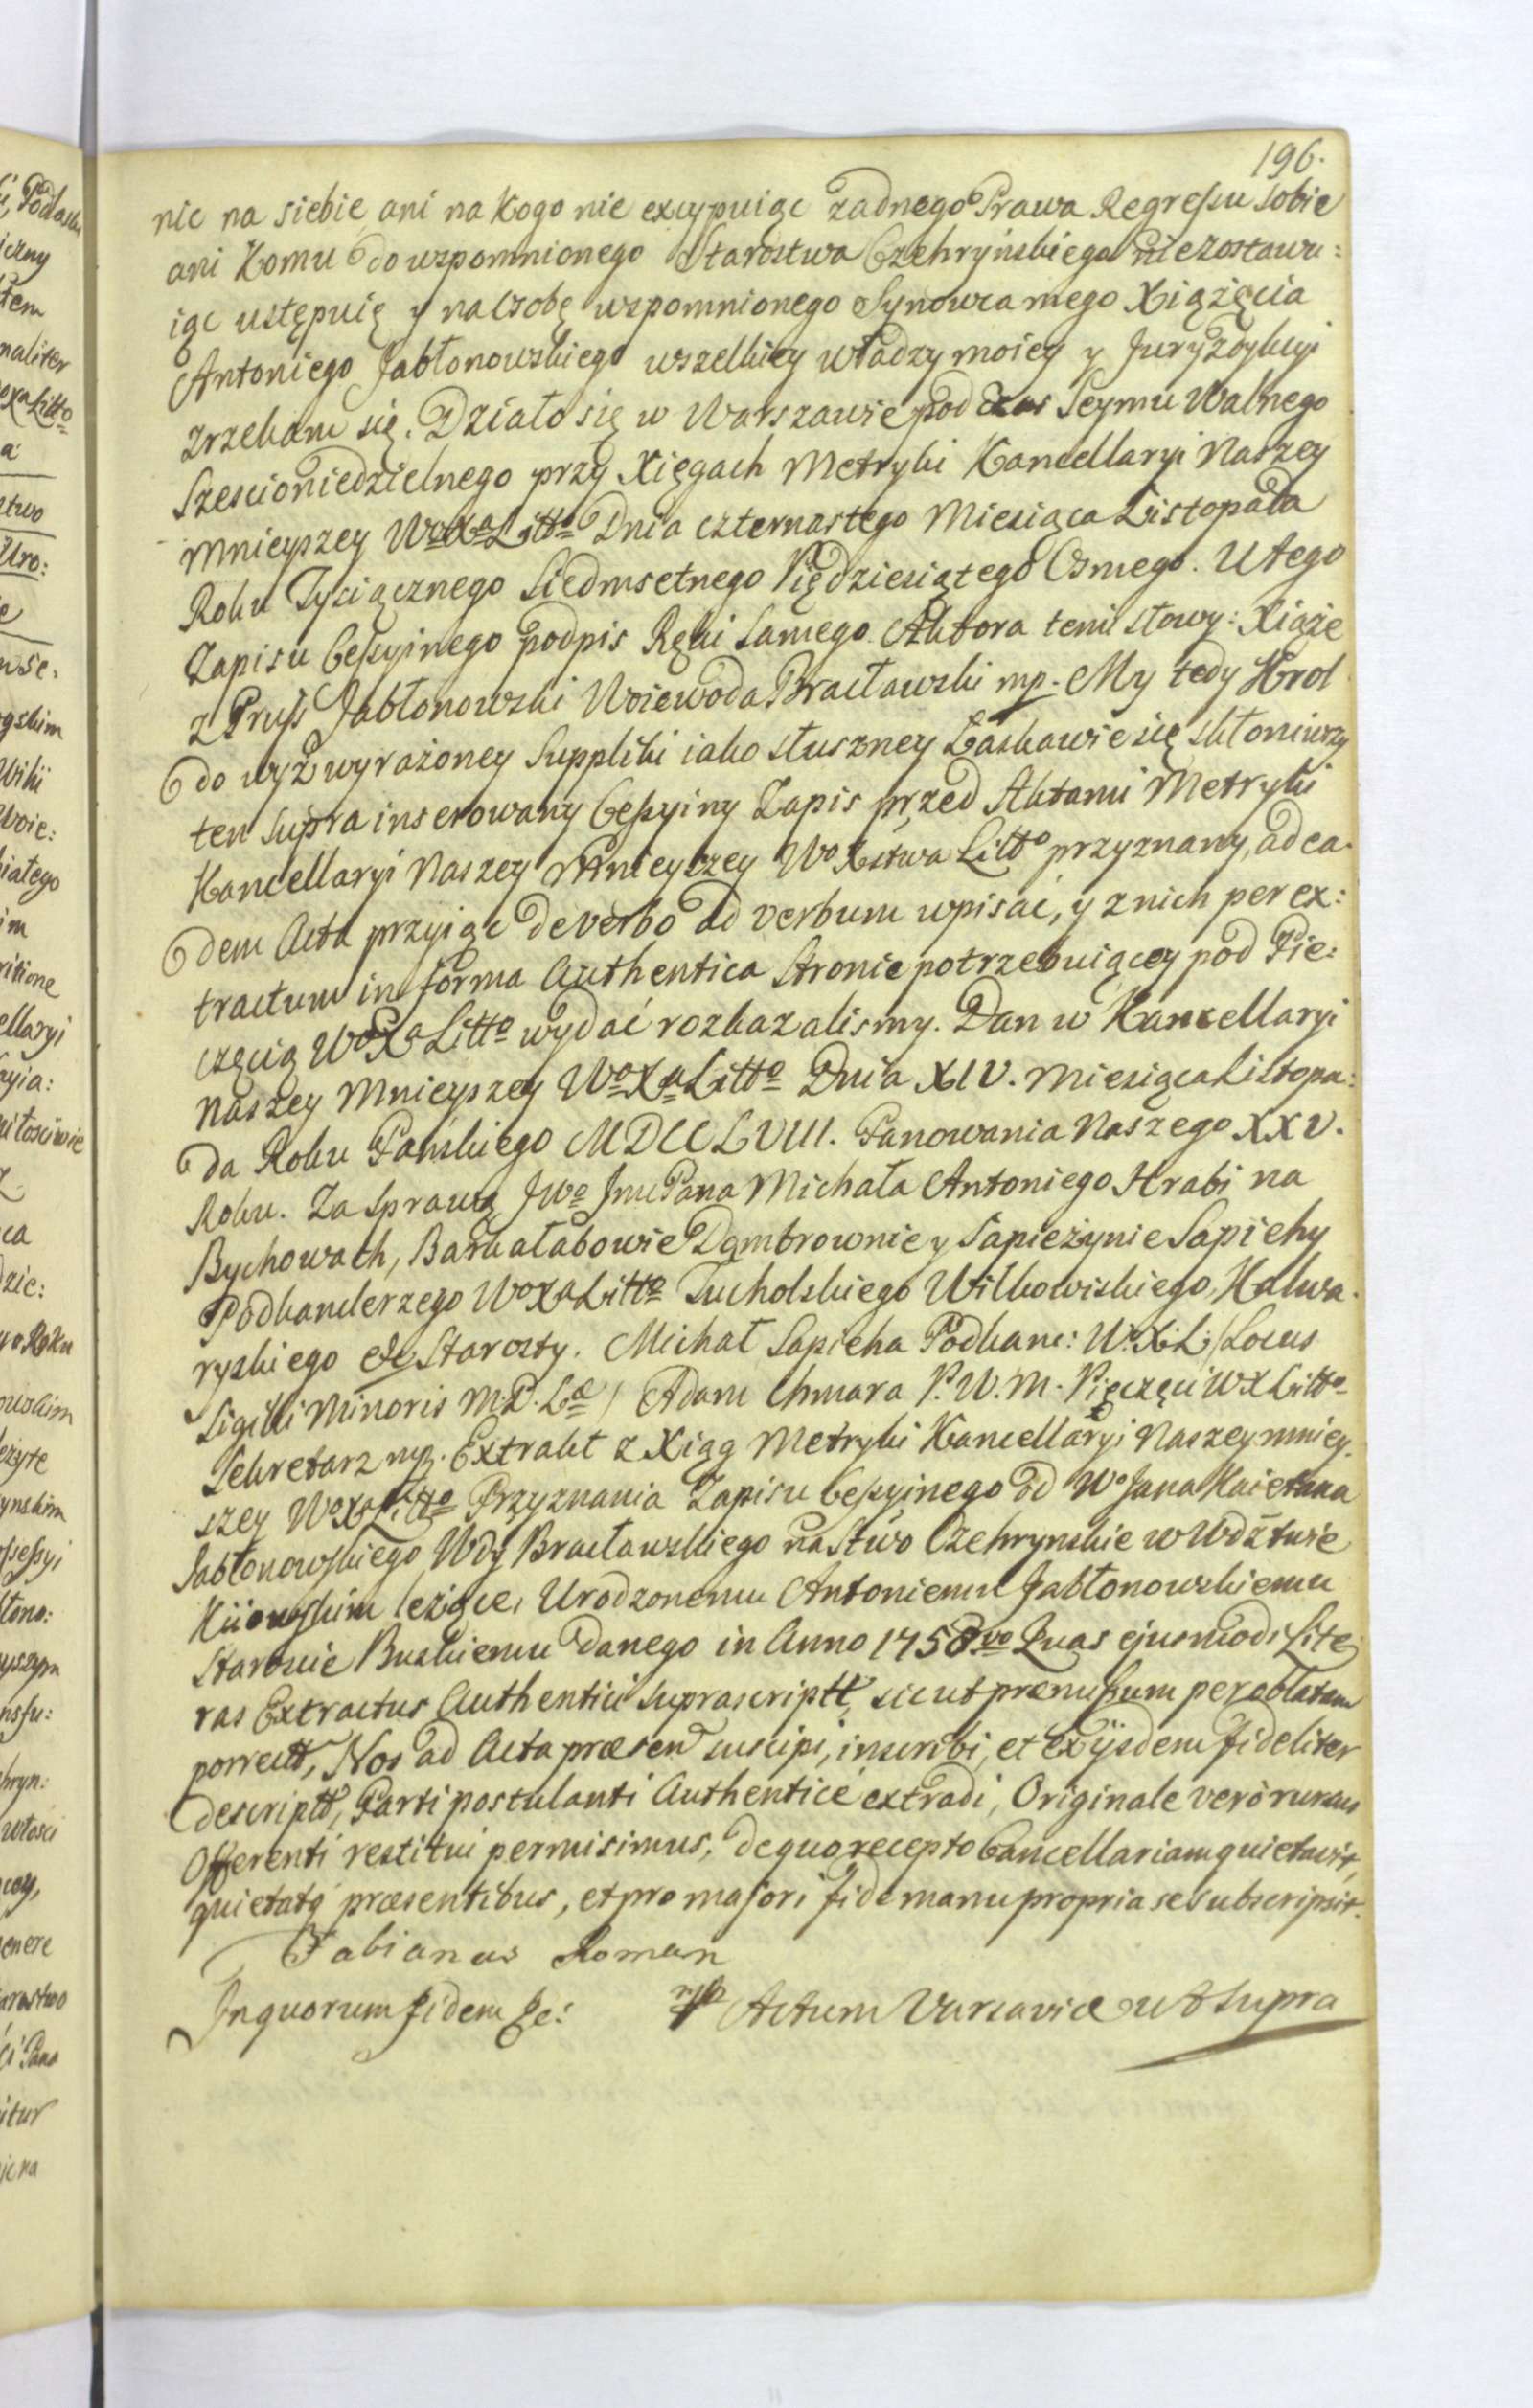 196.
nic na siebie ani na kogo nie excypuiąc żadnego Prawa Regressu sobie
ani komu do wspomnionego Starostwa Czehryńskiego nie zostawu:
iąc ustępuię y na Osobę wspomnionego Synowca mego Xiążęcia
Antoniego Jabłonowskiego wszelkiey władzy moiey y Juryzdykcyi
zrzekam się. Działo się w Warszawie pod czas Seymu Walnego
Szescioniedzielnego przy Xięgach Metryki Kancellaryi Naszey
Mnieyszey WoXaLitto Dnia czternastego Miesiąca Listopada
Roku Tysiącznego Siedmsetnego Piędziesiątego Osmego. U tego
Zapisu Cessyinego podpis Ręki samego Aktora temi słowy: Xiąże
z Pruss Jabłonowski Woiewoda Bracławski mp. My tedy Krol
do wyż wyrażoney Suppliki iako słuszney Łaskawie się skłoniwszy
ten supra inserowany Cessyiny Zapis przed Aktami Metryki
Kancellaryi Naszey Mnieyszey Wo Xstwa Litto przyznany, ad ea.
dem Acta przyiąc de verbo ad verbum wpisać, y z nich per ex:
tractum in forma Authentica Stronie potrzebuiącey pod Pie:
częcią WoXaLitto wydać rozkazalismy. Dan w Kancellaryi
Naszey Mnieyszey WoXaLitto Dnia XIV. Miesiąca Listopa:
da Roku Pańskiego MDCCLVIII. Panowania Naszego XXV.
Roku. Za Sprawą JWo Jmć Pana Michała Antoniego Hrabi na
Bychowach, Barkałabowie Dąmbrownie y Sapieżynie Sapiehy
Podkanclerzego WoXaLitto Tucholskiego Wilkowiskiego, Kalwa.
ryskiego etc Starosty. Michał Sapieha Podkanc: W.X.L. /Locus
Sigilli Minoris M.D.Lae/ Adam Chmara P. W. M. Pięczęci WXLitto
Sekretarz mp. Extrakt z Xiąg Metryki Kancellaryi Naszey mniey.
szey WoXaLitto Przyznania Zapisu Cessyinego od Wo Jana Kaietana
Jabłonowskiego Wdy Bracławskiego na Stwo Czehrynskie w Wdztwie
Kiiowskim leżące, Urodzonemu Antoniemu Jabłonowskiemu
Staroscie Buskiemu danego in Anno 1758vo Quas ejusmodi Lite
ras Extractus Authentici suprascriptt, sicut præmissum per oblatam
porrectt, Nos ad Acta præsen suscipi, inscribi, et ex ijsdem fideliter
descriptt, Parti postulanti Authenticè extradi, Originale verò rursus
Offerenti restitui permisimus, de quo recepto Cancellariam quietavit,
quietatq præsentibus, et pro majori fide manu propria se subscripsit.
Fabianus Roman
In quorum fidem &c: mp Actum Varsaviæ ut supra